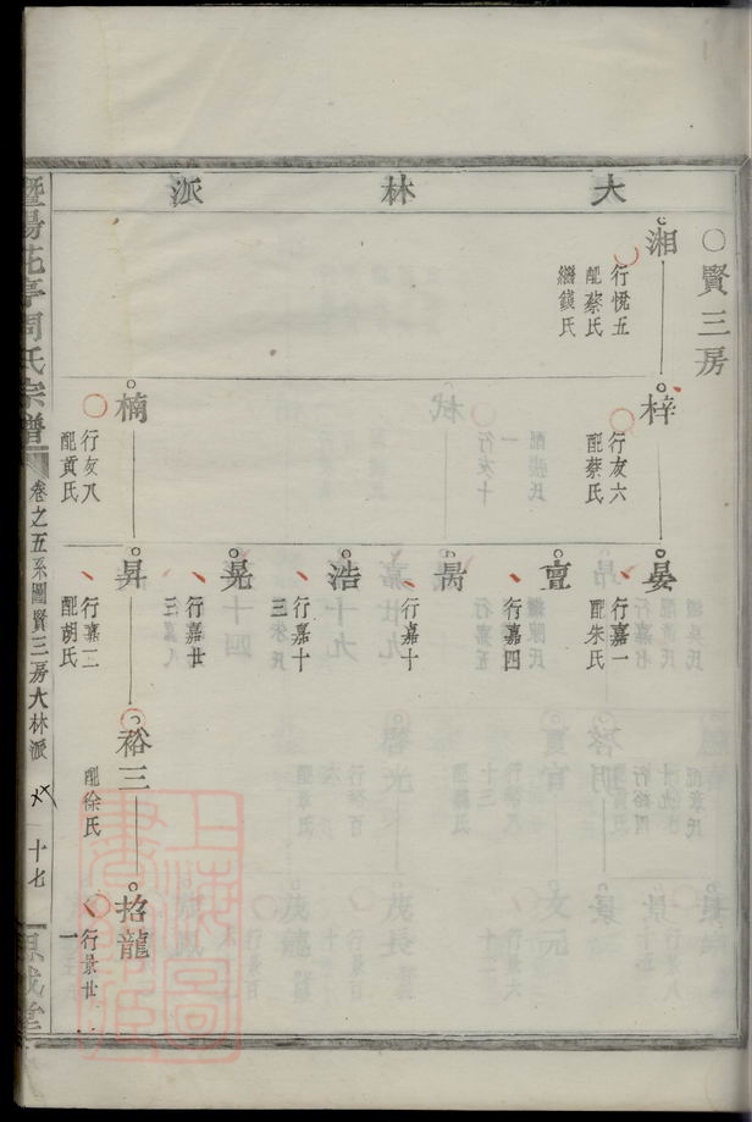 大林派
○賢三房
湘
行悦五
配蔡氏
繼錢氏
梓
行友六
配蔡氏
楠
行友八
配黄氏
晏
行嘉一
配朱氏
亶
行嘉四
暠
行嘉十
浩
行嘉十
三
晃
行嘉廿
三
昇
行嘉二
配胡氏
裕三
配徐氏
招龍
行景廿
一
暨陽花亭周氏宗譜
卷之五系圖賢三房大林派
十七
思成堂
上海圖書館藏